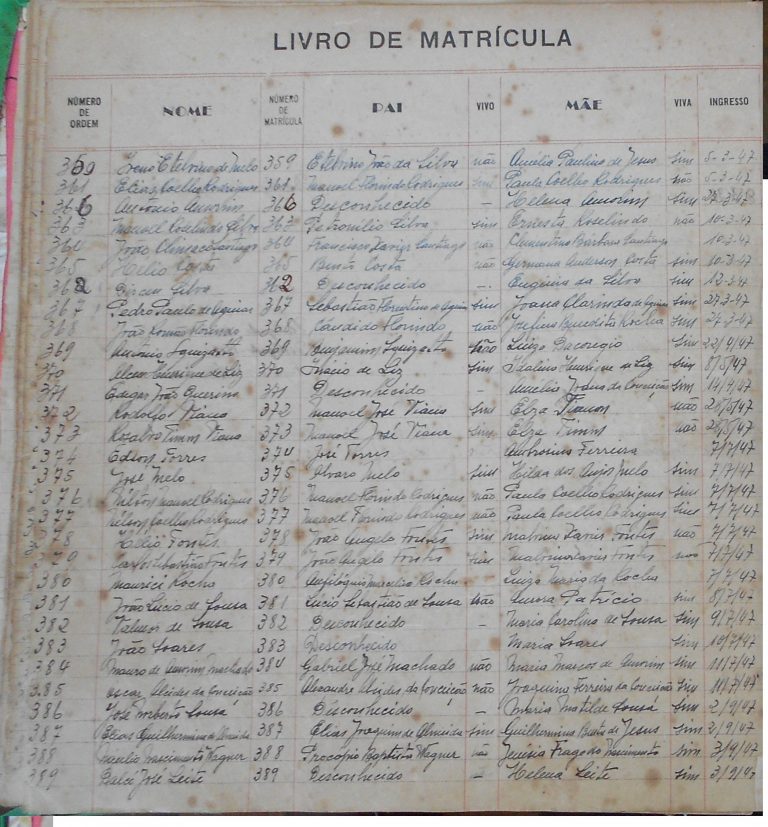 LIVRO DE MATRÍCULA
NÚMERO DE ORDEM NOME NÚMERO DE MATRÍCULA PAI VIVO MÃE VIVA INGRESSO
Etelvino de Melo 359 Etelvino João da Silva não Amélia Paulina de Jesus sim 5-3-47
361 Elias Coelho Rodrigues 361 Manoel Florindo Rodrigues sim Paula Coelho Rodrigues não 5-3-47
366 Antônio Amorim 366 Desconhecido - Helena Amorim sim
363 Manoel Roselindo Silva 363 Petronilio Silva sim Ernesta Roselindo não 10-3-47
364 João Climaco Santiago 364 Francisco Xavier Santiago não Clementina Barbosa Santiago 10-3-47
365 Helio Costa 365 Bento Costa não Germana Anderson Costa sim 10-3-47
362 Silva 362 Desconhecido - Eugenia da Silva sim 12-3-47
367 Pedro Paulo de Aquino 367 Sebastião Florentino de Aquino sim Joana Clarinda de Aquino sim 27-3-47
368 João Romão Florindo 368 Candido Florindo não Josefina Benedita Rocha sim 27-3-47
369 Antônio 369 Benjamim não Luiza Dacoregio sim 22/4/47
370 370 Inácio de Luz sim Idalina Henrique de Luz sim 8/5/47
371 Edegar João Querino 371 Desconhecido - Amelia Joana da Conceição sim 14/4/47
372 Rodolfo Viana 372 Manoel José Viana sim Elza Timm não
373 Timm Viana 373 Manoel José Viana sim Elza Timm não
374 Edson Torres 374 José Torres Ambrosina Ferreira 7/7/47
375 José Melo 375 Alvaro Melo sim Hilda dos Anjos Melo sim 7/7/47
376 Nilson Manoel Rodrigues 376 Manoel Florindo Rodrigues não Paula Coelho Rodrigues sim 7/7/47
377 Nelson Coelho Rodrigues 377 Manoel Florindo Rodrigues não Paula Coelho Rodrigues sim 7/7/47
378 Hélio Fontes 378 João Angelo Fontes sim Fontes não 7/7/47
379 Carlos Sebastião Fontes 379 João Angelo Fontes sim Fontes não 7/7/47
380 Maurici Rocha 380 Rocha Luiza Maria da Rocha 7/7/47
381 João Lúcio de Sousa 381 Lúcio Sebastião de Sousa não Aurora Patrício sim 8/7/47
382 Valmor de Sousa 382 Desconhecido - Maria Carolina de Sousa sim 9/7/47
383 João Soares 383 Desconhecido Maria Soares sim 10/7/47
384 Mauro de Amorim Machado 384 Gabriel José Machado não Maria Marcos de Amorim sim 11/7/47
385 Oscar Alcides da Conceição 385 Alexandre Alcides da Conceição não Joaquina Ferreira da Conceição sim 11/7/47
386 José Norberto Sousa 386 Desconhecido - Maria Matilde Sousa sim 2/9/47
387 Elias Guilhermino de Almeida 387 Elias Joaquim de Almeida sim Guilhermina Bento de Jesus sim 2/9/47
388 Nascimento Wagner 388 Procópio Baptista Wagner não Fragoso Nascimento sim 3/9/47
389 Dalci José Leite 389 Desconhecido - Helena Leite sim 3/9/47